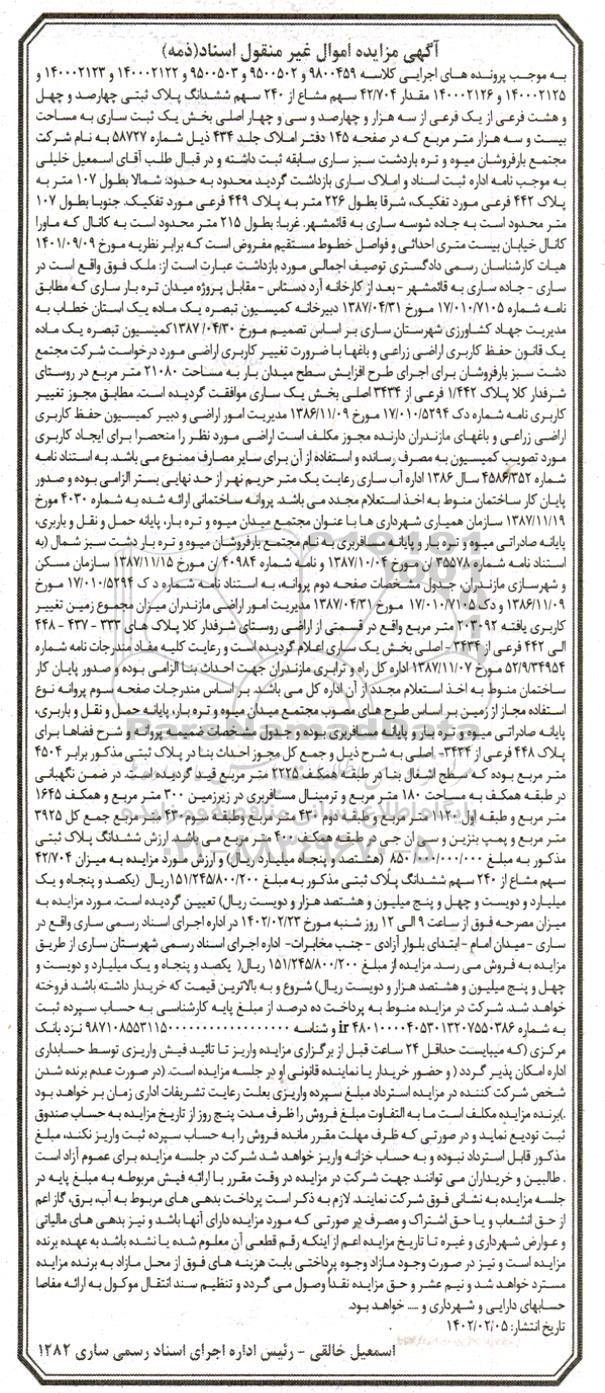 آگهی مزایده اموال غیر منقول اسناد(ذمه)
به موجب پرونده های اجرایی کلاسه ۹۸۰۰۴۵۹ و ۹۵۰۰۵۰۲ و ۹۵۰۰۵۰۳ و ۱۴۰۰۰۲۱۲۲ و ۱۴۰۰۰۲۱۲۳ و
۱۴۰۰۰۲۱۲۵ و ۱۴۰۰۰۲۱۲۶ مقدار ۴۲/۷۰۴ سهم مشاع از ۲۴۰ سهم ششدانگ پلاک ثبتی چهارصد و چهل
و هشت فرعی از یک فرعی از سه هزار و چهارصد و سی و چهار اصلی بخش یک ثبت ساری به مساحت
بیست و سه هزار متر مربع که در صفحه ۱۴۵ دفتر املاک جلد ۴۳۴ ذیل شماره ۵۸۷۲۷ به نام شرکت
مجتمع بارفروشان میوه و تره باردشت سبز ساری سابقه ثبت داشته و در قبال طلب آقای اسمعیل خلیلی
به موجب نامه اداره ثبت اسناد و املاک ساری بازداشت گردید محدود به حدود: شمالا بطول ۱۰۷ متر به
پلاک ۴۴۲ فرعی مورد تفکیک، شرقا بطول ۲۲۶ متر به پلاک ۴۴۹ فرعی مورد تفکیک. جنوبا بطول ۱۰۷
متر محدود است به جاده شوسه ساری به قائمشهر. غربا: بطول ۲۱۵ متر محدود است به کانال که ماورا
کانال خیابان بیست متری احداثی و فواصل خطوط مستقیم مفروض است که برابر نظریه مورخ ۱۴۰۱/۰۹/۰۹
هیات کارشناسان رسمی دادگستری توصیف اجمالی مورد بازداشت عبارت است از: ملک فوق واقع است در
ساری - جاده ساری به قائمشهر - بعد از کارخانه آرد دستاس - مقابل پروژه میدان تره بار ساری که مطابق
نامه شماره ۱۷/۰۱۰/۷۱۰۵ مورخ ۱۳۸۷/۰۴/۳۱ دبیرخانه کمیسیون تبصره یک ماده یک استان خطاب به
مدیریت جهاد کشاورزی شهرستان ساری بر اساس تصمیم مورخ ۱۳۸۷/۰۴/۳۰ کمیسیون تبصره یک ماده
یک قانون حفظ کاربری اراضی زراعی و باغها با ضرورت تغییر کاربری اراضی مورد درخواست شرکت مجتمع
دشت سبز بارفروشان برای اجرای طرح افزایش سطح میدان بار به مساحت ۲۱۰۸۰ متر مربع در روستای
شرفدار کلا پلاک ۱/۴۴۲ فرعی از ۳۴۳۴ اصلی بخش یک ساری موافقت گردیده است. مطابق مجوز تغییر
کاربری نامه شماره دک ۱۷/۰۱۰/۵۲۹۴ مورخ ۱۳۸۶/۱۱/۰۹ مدیریت امور اراضی و دبیر کمیسیون حفظ کاربری
اراضی زراعی و باغهای مازندران دارنده مجوز مکلف است اراضی مورد نظر را منحصرا برای ایجاد کاربری
مورد تصویب کمیسیون به مصرف رسانده و استفاده از آن برای سایر مصارف ممنوع می باشد. به استناد نامه
شماره ۴۵۸۶/۳۵۲ سال ۱۳۸۶ اداره آب ساری رعایت یک متر حریم نهر از حد نهایی بستر الزامی بوده و صدور
پایان کار ساختمان منوط به اخذ استعلام مجدد می باشد. پروانه ساختمانی ارائه شده به شماره ۴۰۳۰ مورخ
۱۳۸۷/۱۱/۱۹ سازمان همیاری شهرداری ها با عنوان مجتمع میدان میوه و تره بار، پایانه حمل و نقل و باربری،
پایانه صادراتی میوه و تره بار و پایانه مسافربری به نام مجتمع بارفروشان میوه و تره بار دشت سبز شمال (به
استناد نامه شماره ۳۵۵۷۸ /ن مورخ ۱۳۸۷/۱۰/۰۴ و نامه شماره ۴۰۹۸۴ /ن مورخ ۱۳۸۷/۱۱/۱۵ سازمان مسکن
و شهرسازی مازندران، جدول مشخصات صفحه دوم پروانه، به استناد نامه شماره د ک ۱۷/۰۱۰/۵۲۹۴ مورخ
۱۳۸۶/۱۱/۰۹ و دک ۱۷/۰۱۰/۷۱۰۵ مورخ ۱۳۸۷/۰۴/۳۱ مدیریت امور اراضی مازندران میزان مجموع زمین تغییر
کاربری یافته ۲۰۳۰۹۲ متر مربع واقع در قسمتی از اراضی روستای شرفدار کلا پلاک های ۳۳۳ - ۴۳۷ - ۴۴۸
الی ۴۴۲ فرعی از ۳۴۳۴ - اصلی بخش یک ساری اعلام گردیده است و رعایت کلیه مفاد مندرجات نامه شماره
۵۲/۹/۳۴۹۵۴ مورخ ۱۳۸۷/۱۱/۰۷ اداره کل راه و ترابری مازندران جهت احداث بنا الزامی بوده و صدور پایان کار
ساختمان منوط به اخذ استعلام مجدد از آن اداره کل می باشد. بر اساس مندرجات صفحه سوم پروانه نوع
استفاده مجاز از زمین بر اساس طرح های مصوب مجتمع میدان میوه و تره بار، پایانه حمل و نقل و باربری،
پایانه صادراتی میوه و تره بار و پایانه مسافربری بوده و جدول مشخصات ضمیمه پروانه و شرح فضاها برای
پلاک ۴۴۸ فرعی از ۳۴۳۴- اصلی به شرح ذیل و جمع کل مجوز احداث بنا در پلاک ثبتی مذکور برابر ۴۵۰۴
متر مربع بوده که سطح اشغال بنا در طبقه همکف ۲۲۲۵ متر مربع قید گردیده است. در ضمن نگهبانی
در طبقه همکف به مساحت ۱۸۰ متر مربع و ترمینال مسافربری در زیرزمین ۳۰۰ متر مربع و همکف ۱۶۴۵
متر مربع و طبقه اول ۱۱۲۰ متر مربع و طبقه دوم ۴۳۰ متر مربع وطبقه سوم ۴۳۰ متر مربع جمع کل ۳۹۲۵
متر مربع و پمپ بنزین و سی ان جی در طبقه همکف ۴۰۰ متر مربع می باشد. ارزش ششدانگ پلاک ثبتی
مذکور به مبلغ ۸۵۰/۰۰۰/۰۰۰/۰۰۰ (هشتصد و پنجاه میلیارد ریال) و ارزش مورد مزایده به میزان ۴۲/۷۰۴
سهم مشاع از ۲۴۰ سهم ششدانگ پلاک ثبتی مذکور به مبلغ ۱۵۱/۲۴۵/۸۰۰/۲۰۰ریال (یکصد و پنجاه و یک
میلیارد و دویست و چهل و پنج میلیون و هشتصد هزار و دویست ریال) تعیین گردیده است. مورد مزایده به
میزان مصرحه فوق از ساعت ۹ الی ۱۲ روز شنبه مورخ ۱۴۰۲/۰۲/۲۳ در اداره اجرای اسناد رسمی ساری واقع در
ساری - میدان امام - ابتدای بلوار آزادی - جنب مخابرات- اداره اجرای اسناد رسمی شهرستان ساری از طریق
مزایده به فروش می رسد. مزایده از مبلغ ۱۵۱/۲۴۵/۸۰۰/۲۰۰ ریال( یکصد و پنجاه و یک میلیارد و دویست و
چهل و پنج میلیون و هشتصد هزار و دویست ریال) شروع و به بالاترین قیمت که خریدار داشته باشد فروخته
خواهد شد. شرکت در مزایده منوط به پرداخت ده درصد از مبلغ پایه کارشناسی به حساب سپرده ثبت
به شماره ir ۴۸۰۱۰۰۰۰۴۰۵۳۰۱۳۲۰۷۵۵۰۳۸۶ و شناسه ۹۸۷۱۰۸۵۵۳۱۱۵۰۰۰۰۰۰۰۰۰۰۰۰۰۰۰۰۰۰ نزد بانک
مرکزی (که میبایست حداقل ۲۴ ساعت قبل از برگزاری مزایده واریز تا تائید فیش واریزی توسط حسابداری
اداره امکان پذیر گردد ( و حضور خریدار یا نماینده قانونی او در جلسه مزایده است. (در صورت عدم برنده شدن
شخص شرکت کننده در مزایده استرداد مبلغ سپرده واریزی بعلت رعایت تشریفات اداری زمان بر خواهد بود
.)برنده مزایده مکلف است ما به التفاوت مبلغ فروش را ظرف مدت پنج روز از تاریخ مزایده به حساب صندوق
ثبت تودیع نماید و در صورتی که ظرف مهلت مقرر مانده فروش را به حساب سپرده ثبت واریز نکند، مبلغ
مذکور قابل استرداد نبوده و به حساب خزانه واریز خواهد شد شرکت در جلسه مزایده برای عموم آزاد است
. طالبین و خریداران می توانند جهت شرکت در مزایده در وقت مقرر با ارائه فیش مربوطه به مبلغ پایه در
جلسه مزایده به نشانی فوق شرکت نمایند. لازم به ذکر است پرداخت بدهی های مربوط به آب، برق، گاز اعم
از حق انشعاب و یا حق اشتراک و مصرف در صورتی که مورد مزایده دارای آنها باشد و نیز بدهی های مالیاتی
و عوارض شهرداری و غیره تا تاریخ مزایده اعم از اینکه رقم قطعی آن معلوم شده یا نشده باشد به عهده برنده
مزایده است و نیز در صورت وجود مازاد وجوه پرداختی بابت هزینه های فوق از محل مازاد به برنده مزایده
مسترد خواهد شد و نیم عشر و حق مزایده نقداً وصول می گردد و تنظیم سند انتقال موکول به ارائه مفاصا
حسابهای دارایی و شهرداری و .... خواهد بود.
تاریخ انتشار: ۱۴۰۲/۰۲/۰۵
اسمعیل خالقی - رئیس اداره اجرای اسناد رسمی ساری ۱۲۸۲